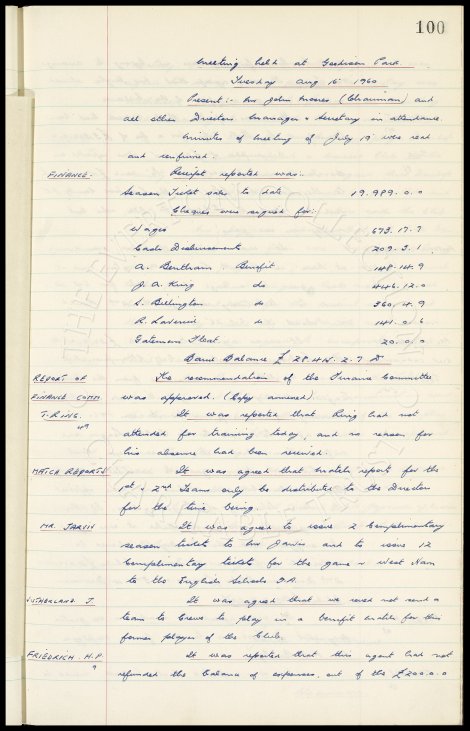 100
Meeting held at Goodison Park
Tuesday Aug 16 1960
Present :- Mr John Moores (Chairman) and
all other Directors. Manager & Secretary in attendance.
Minutes of Meeting of July 19 were read
and confirmed.
FINANCE. Receipt reported was :-
Season Ticket sales to date 19.989.0.0
Cheques were signed for :-
Wages 673.17.7
Cash Disbursements 209.3.1
A. Bentham. Benefit 148.14.9
J.A. King do 446.12.0
S. Billington do 360.4.9
R. Laverick do 141.0.6
Gatemens Float 20.0.0
Bank Balance £ 28.445.2.7 D
REPORT OF The recommendation of the Finance Committee
FINANCE COMM. was approved. (Copy annexed)
T. RING. It was reported that Ring had not
attended for training today, and no reason for
his absence had been received.
MATCH REPORTS It was agreed that match reports for the
1st & 2nd Teams only be distributed to the Directors
for the time being.
MR. JARVIS It was agreed to issue 2 Complimentary
season tickets to Mr Jarvis and to issue 12
Complimentary tickets for the game v West Ham
to the English Schools F.A.
SUTHERLAND. J. It was agreed that we send a
team to Crewe to play in a benefit match for this
former player of the Club.
FRIEDRICH. H.P. It was reported that this agent had not
refunded the balance of expenses, out of the £200.0.0